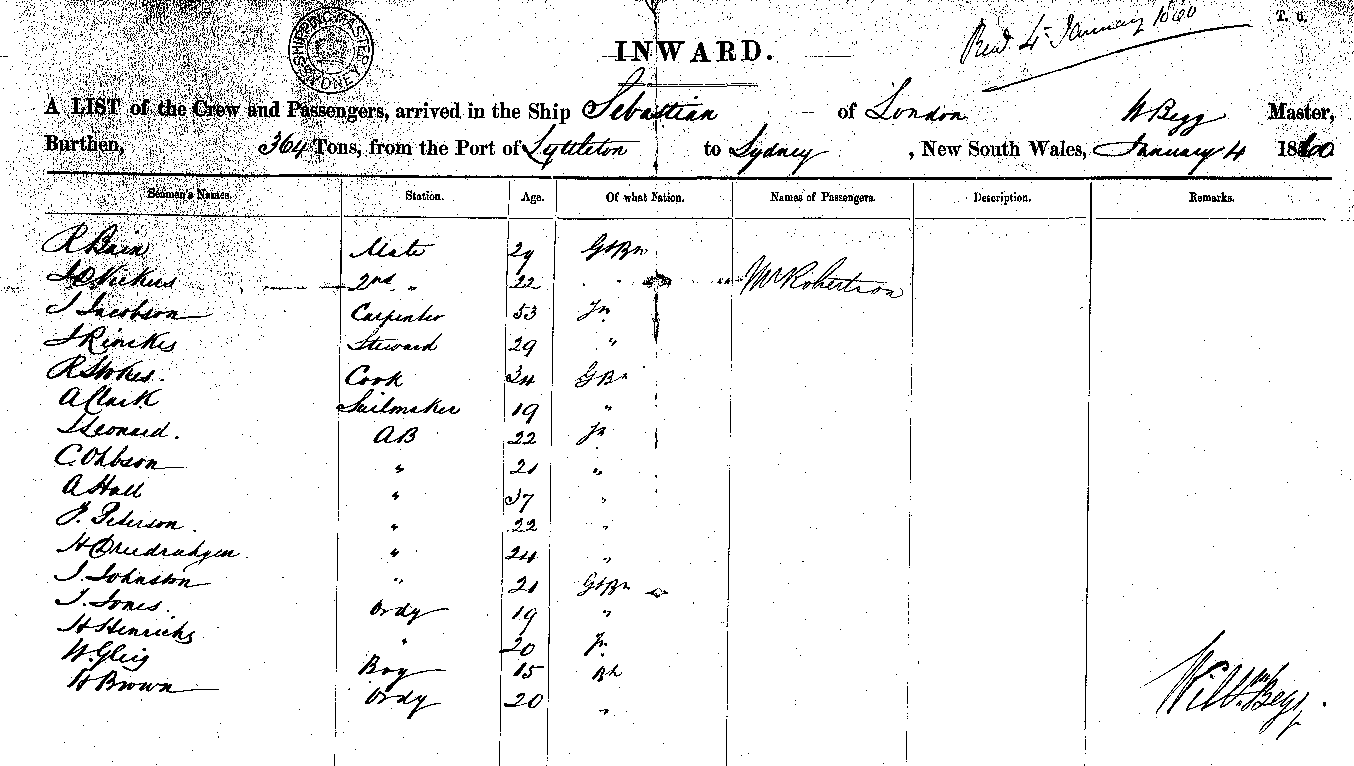 T. 6.
Recd 4 January 1860
SHIPPING MASTER SYDNEY
INWARD.
A LIST of the Crew and Passengers, arrived in the Ship Sebastian of London W Begg Master,
Burthen, 364 Tons, from the Port of Lyttleton to Sydney, New South Wales, January 4 1860
Seamen's Names. Station. Age. Of what Nation. Names of Passengers. Description. Remarks.
R Bain Mate 29 Gt Bn
22 2nd " " Mr Robertson
J Jacobson Carpenter 53 Fn
J Rinskes Steward 29 "
R Stokes. Cook 34 G Bn
A Clark Sailmaker 19 "
J Leonard. AB 22 Fn
C. Ohlson " 21 "
A Hall " 37 "
J. Peterson. " 22 "
H " 24 "
J. Johnston " 21 Gt Bn
J. Jones. Ordy 19 "
H Henrichs " 20 Fn
W. Gleig Boy 15 Bh
H Brown Ordy 20 "
Willm Begg.